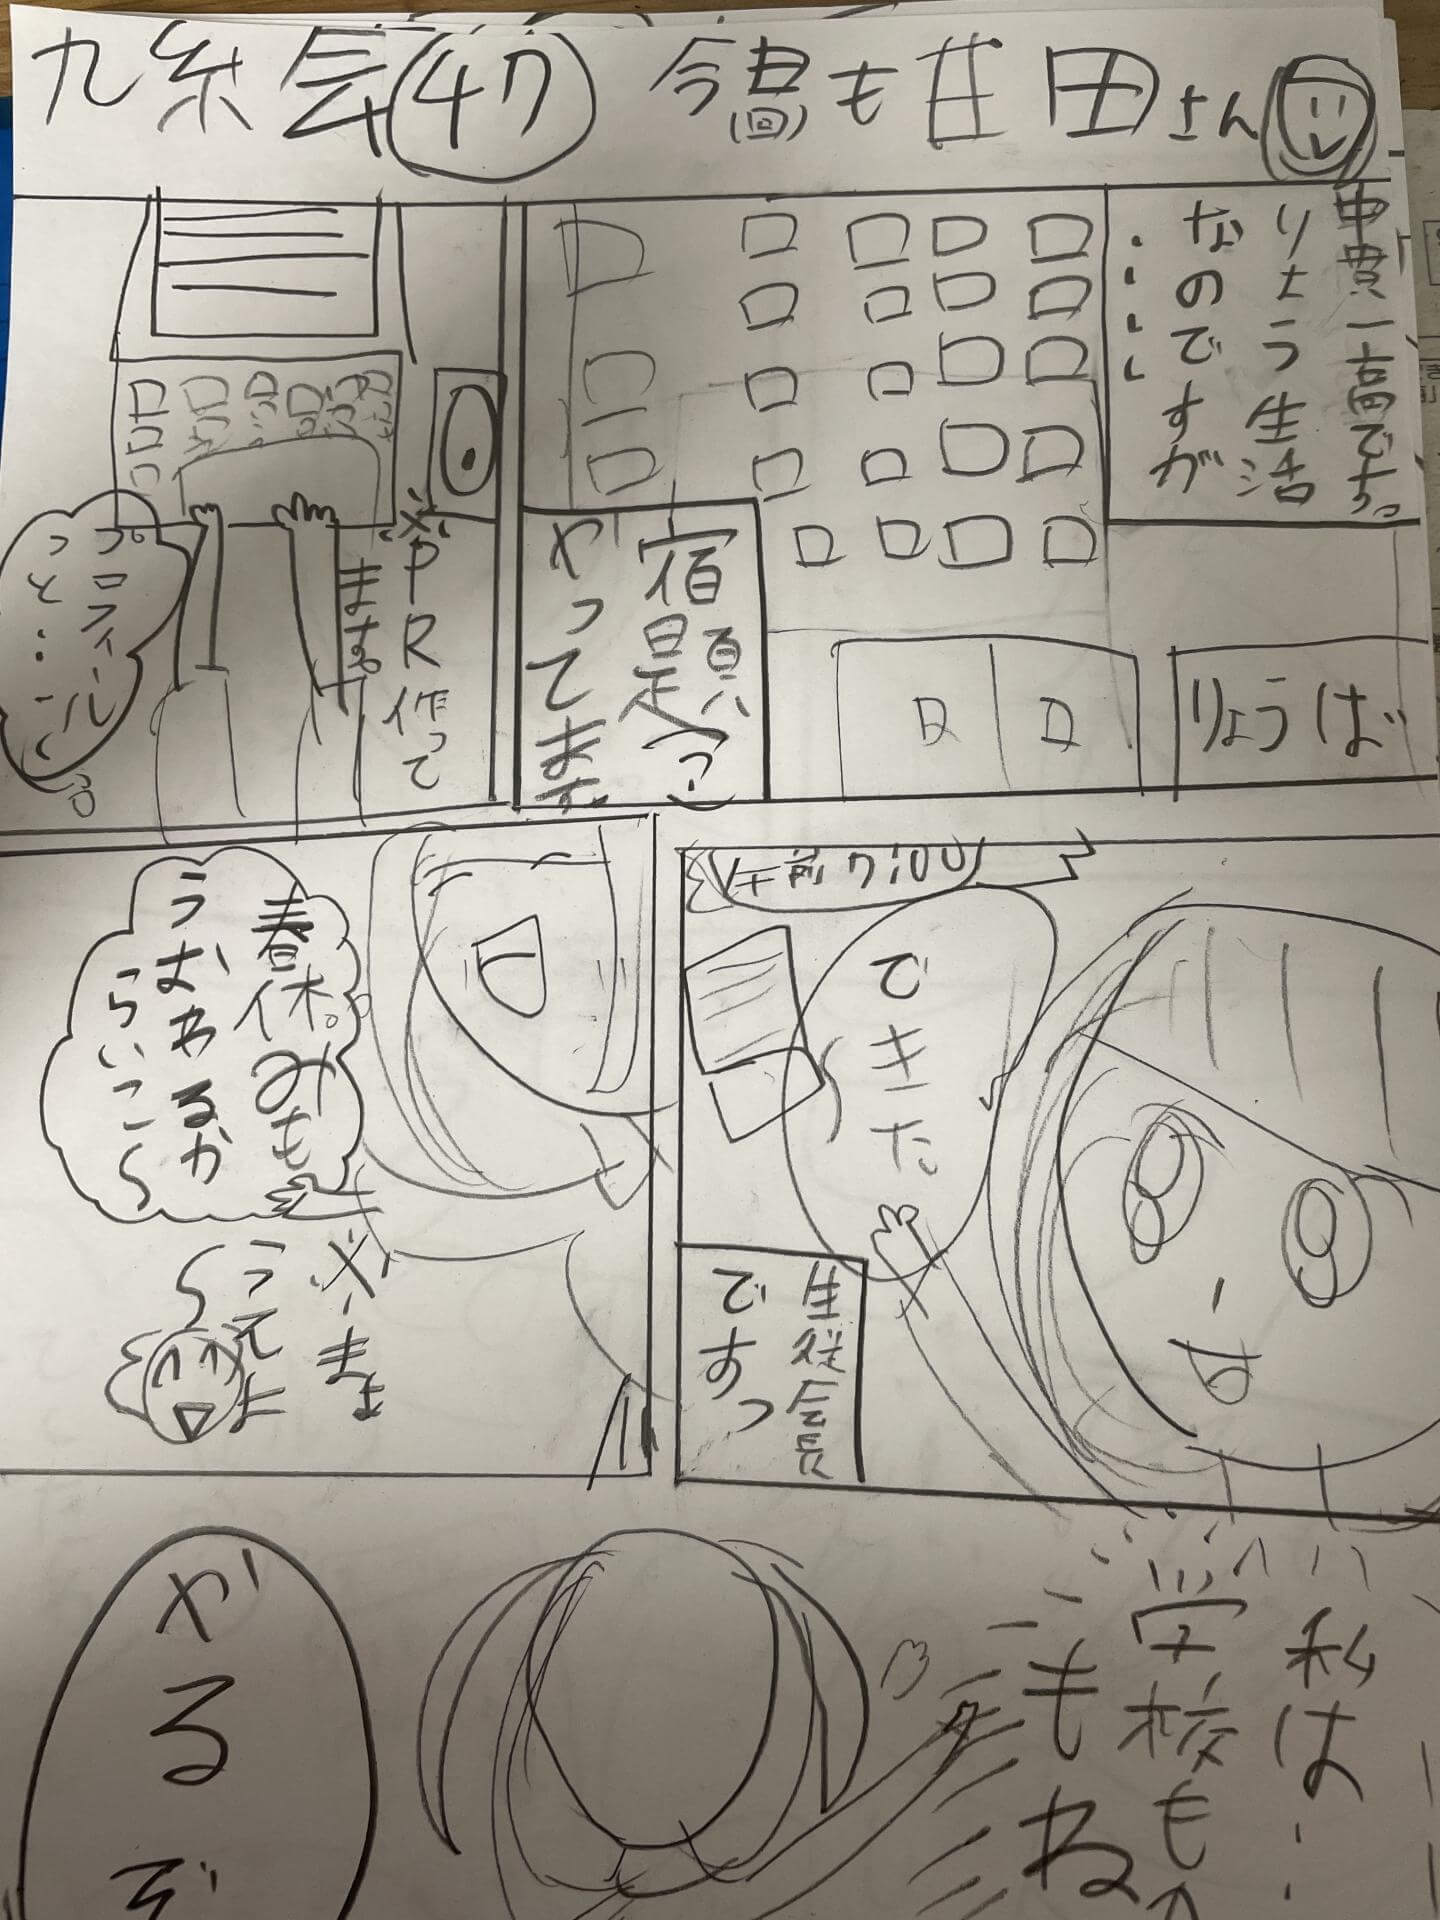 九糸会㊼ 今（回）も甘田さん
申貫一高でち。
りょう生活
なのですが
・・・・
りょうば
宿題
やってます
※PR作って
ます。
プロフィール
っと…
午前7:00
できた
生従会長
ですっ
春休みも
うおわるか
らいこ〜
※まよ
ってよ〜
私は…
学校も
もね
やるぞ